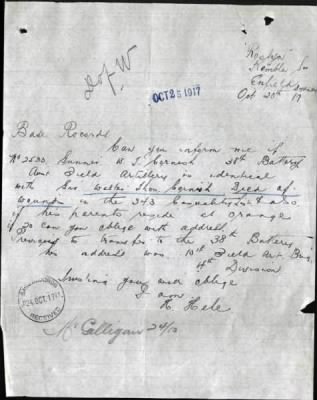 D of W
OCT 25 1917
Enfield
Oct 20th 17
Base Records
Can you inform me if
No 2533 Gunner W. T. Cornish 38th Battery
Aust Field Artillery is identical
with Gnr Walter Thos. Cornish Died of
wounds in the 343 Casualty List & also
if his parents reside at Orange
if so can you oblige with address
previous to transfer to the 38th Battery
his address was 10th Field Art. Brig
4th Division
Trusting you will oblige
I am
H. Hele
24 OCT. 1917
RECEIVED
Mc Gallegan 24/10